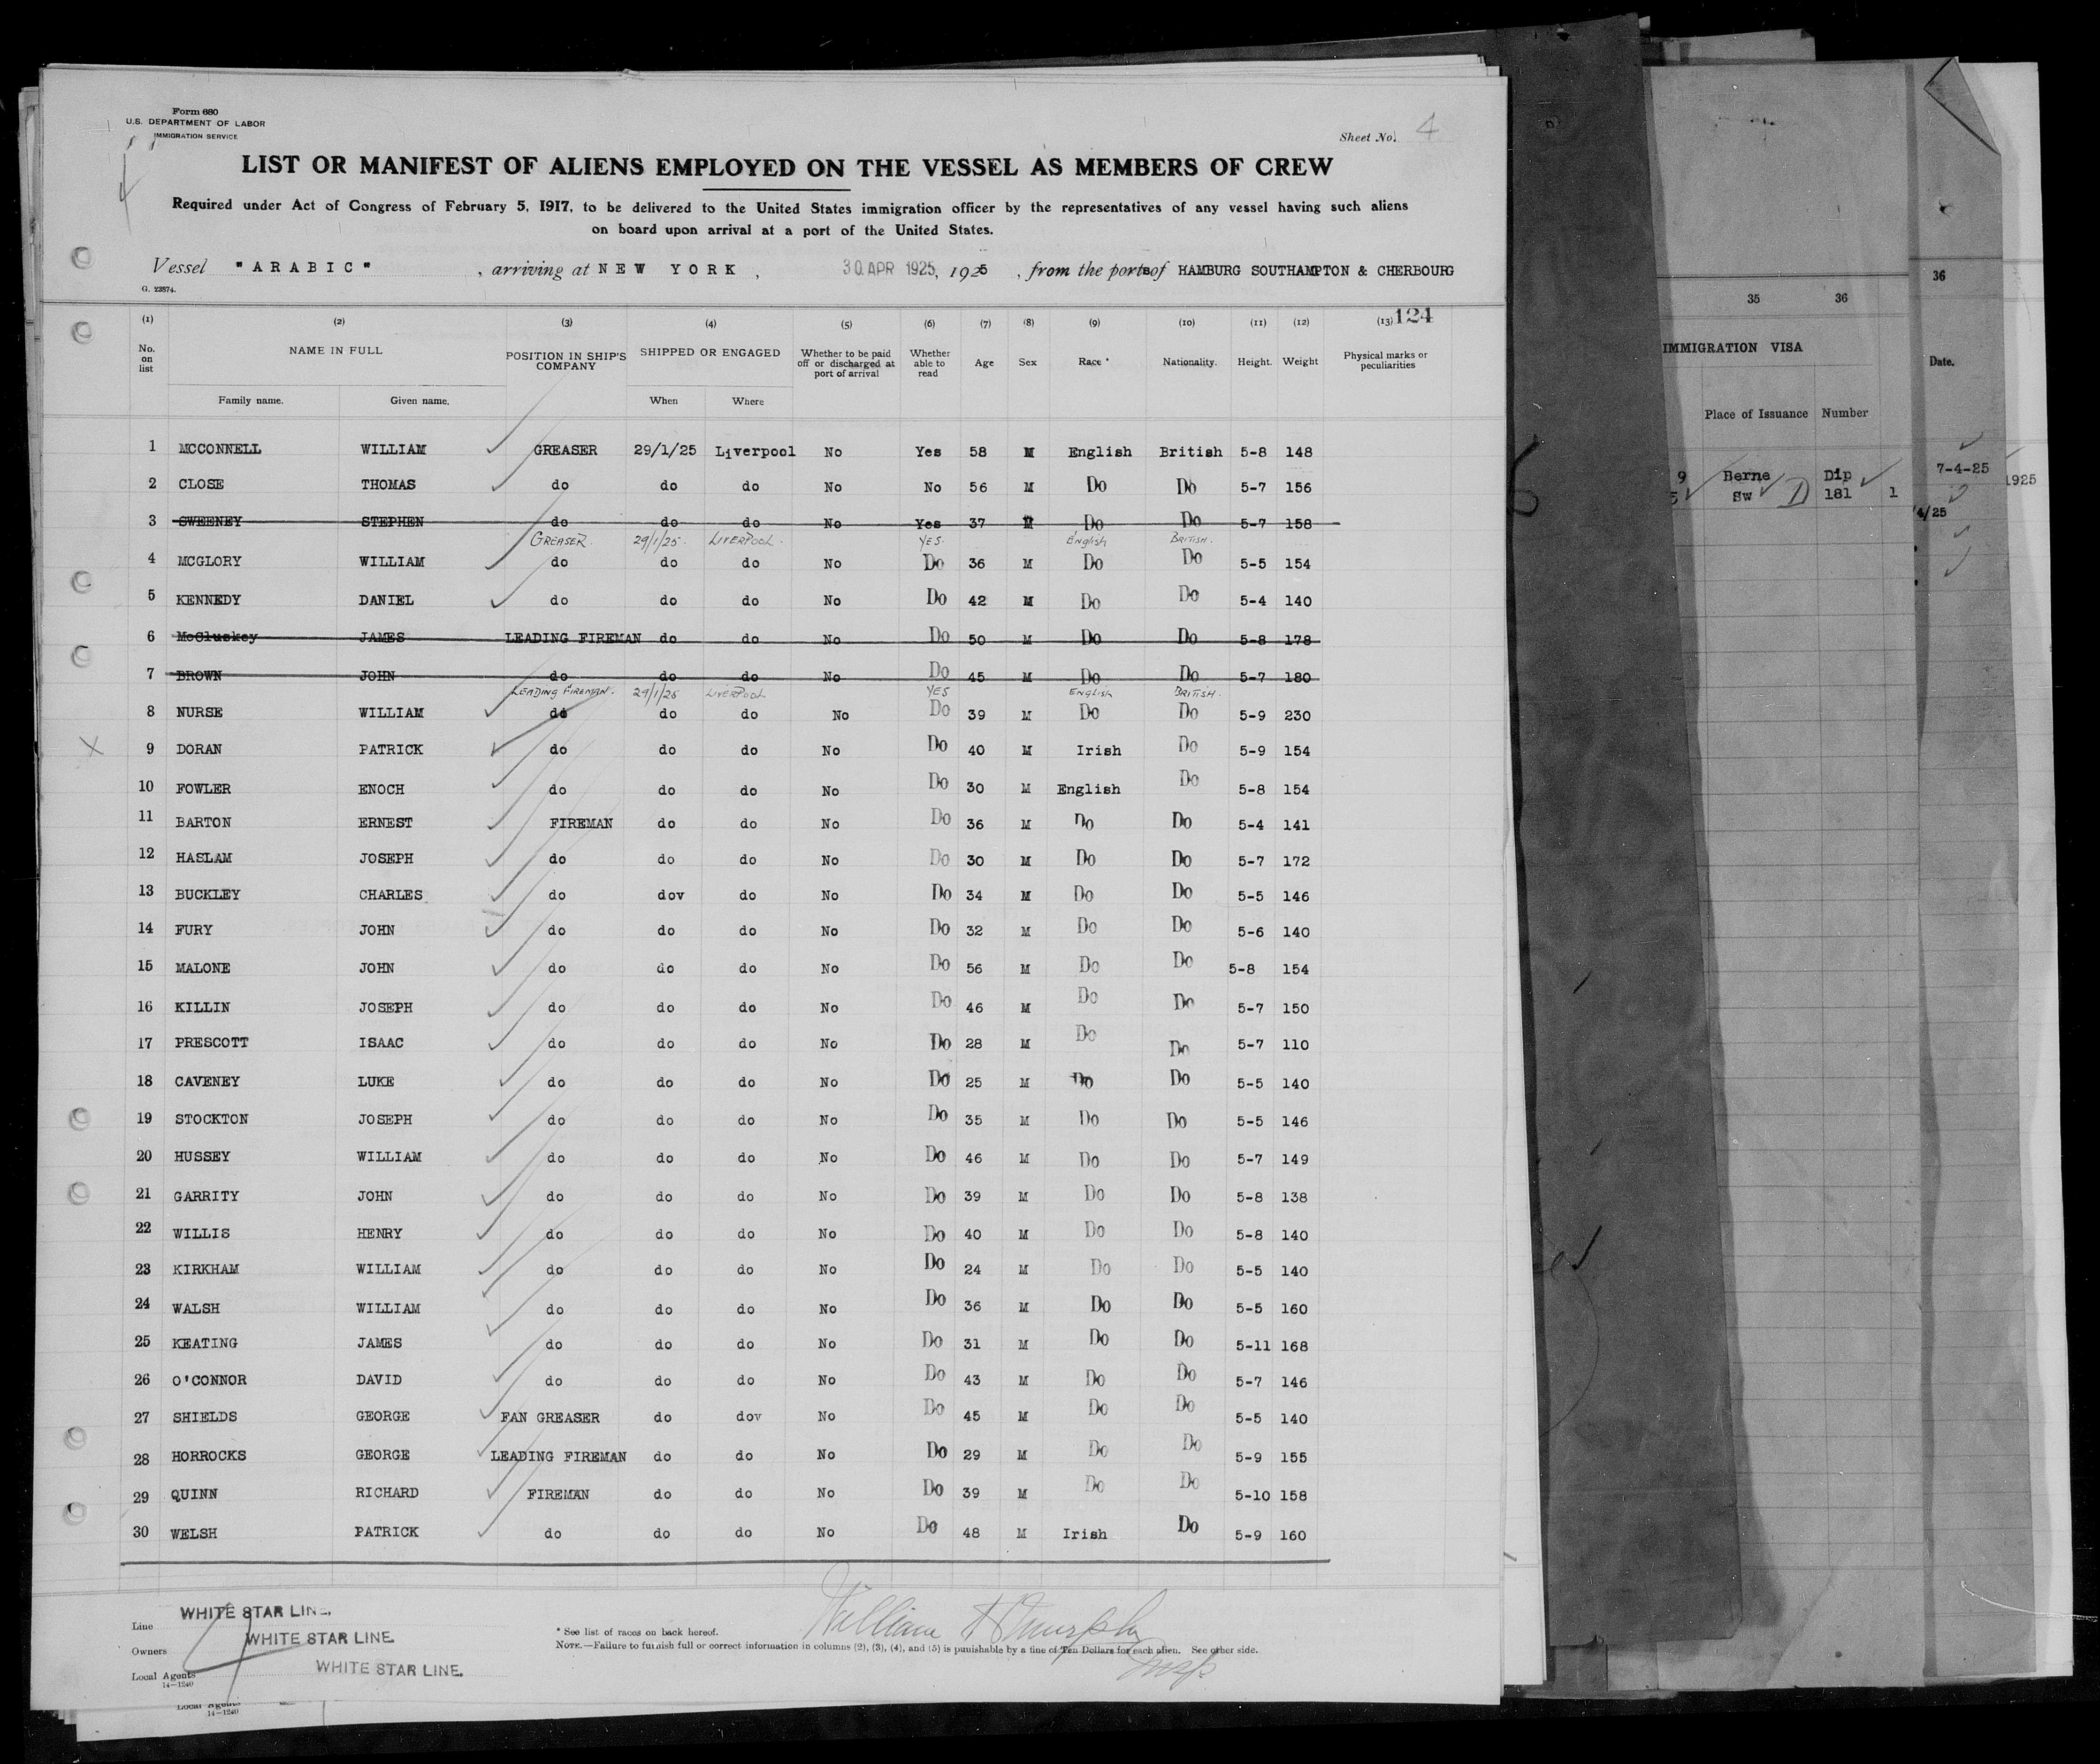 Form 680
U.S. DEPARTMENT OF LABOR
IMMIGRATION SERVICE
Sheet No. 4
LIST OR MANIFEST OF ALIENS EMPLOYED ON THE VESSEL AS MEMBERS OF CREW
Required under Act of Congress of February 5, 1917, to be delivered to the United States immigration officer by the representatives of any vessel having such aliens
on board upon arrival at a port of the United States.
Vessel "ARABIC" , arriving at NEW YORK , 30 APR 1925, 1925 , from the ports of HAMBURG SOUTHAMPTON & CHERBOURG
G. 23874.
(1) (2) (3) (4) (5) (6) (7) (8) (9) (10) (11) (12) (13) 124
No. on list NAME IN FULL POSITION IN SHIP'S COMPANY SHIPPED OR ENGAGED Whether to be paid off or discharged at port of arrival Whether able to read Age Sex Race * Nationality. Height. Weight Physical marks or peculiarities
Family name. Given name. When Where
1 MCCONNELL WILLIAM GREASER 29/1/25 Liverpool No Yes 58 M English British 5-8 148
2 CLOSE THOMAS do do do No No 56 M Do Do 5-7 156
3 SWEENEY STEPHEN do do do No Yes 37 M Do Do 5-7 158
GREASER. 29/1/25. LIVERPOOL. YES. English BRITISH.
4 MCGLORY WILLIAM do do do No Do 36 M Do Do 5-5 154
5 KENNEDY DANIEL do do do No Do 42 M Do Do 5-4 140
6 McCluskey JAMES LEADING FIREMAN do do No Do 50 M Do Do 5-8 178
7 BROWN JOHN do do do No Do 45 M Do Do 5-7 180
LEADING FIREMAN. 29/1/25 LIVERPOOL YES English BRITISH.
8 NURSE WILLIAM do do do No Do 39 M Do Do 5-9 230
9 DORAN PATRICK do do do No Do 40 M Irish Do 5-9 154
10 FOWLER ENOCH do do do No Do 30 M English Do 5-8 154
11 BARTON ERNEST FIREMAN do do No Do 36 M Do Do 5-4 141
12 HASLAM JOSEPH do do do No Do 30 M Do Do 5-7 172
13 BUCKLEY CHARLES do dov do No Do 34 M Do Do 5-5 146
14 FURY JOHN do do do No Do 32 M Do Do 5-6 140
15 MALONE JOHN do do do No Do 56 M Do Do 5-8 154
16 KILLIN JOSEPH do do do No Do 46 M Do Do 5-7 150
17 PRESCOTT ISAAC do do do No Do 28 M Do Do 5-7 110
18 CAVENEY LUKE do do do No Do 25 M Do Do 5-5 140
19 STOCKTON JOSEPH do do do No Do 35 M Do Do 5-5 146
20 HUSSEY WILLIAM do do do No Do 46 M Do Do 5-7 149
21 GARRITY JOHN do do do No Do 39 M Do Do 5-8 138
22 WILLIS HENRY do do do No Do 40 M Do Do 5-8 140
23 KIRKHAM WILLIAM do do do No Do 24 M Do Do 5-5 140
24 WALSH WILLIAM do do do No Do 36 M Do Do 5-5 160
25 KEATING JAMES do do do No Do 31 M Do Do 5-11 168
26 O'CONNOR DAVID do do do No Do 43 M Do Do 5-7 146
27 SHIELDS GEORGE FAN GREASER do dov No Do 45 M Do Do 5-5 140
28 HORROCKS GEORGE LEADING FIREMAN do do No Do 29 M Do Do 5-9 155
29 QUINN RICHARD FIREMAN do do No Do 39 M Do Do 5-10 158
30 WELSH PATRICK do do do No Do 48 M Irish Do 5-9 160
Line WHITE STAR LINE.
Owners WHITE STAR LINE.
Local Agents WHITE STAR LINE.
14—1240
* See list of races on back hereof.
NOTE.—Failure to furnish full or correct information in columns (2), (3), (4), and (5) is punishable by a fine of Ten Dollars for each alien. See other side.
William Murphy
Insp.
Local Agents
14—1240
35 36
IMMIGRATION VISA
Place of Issuance Number
9 Berne Dip
5 Sw 181 1
36
Date.
7-4-25
4/25
1925